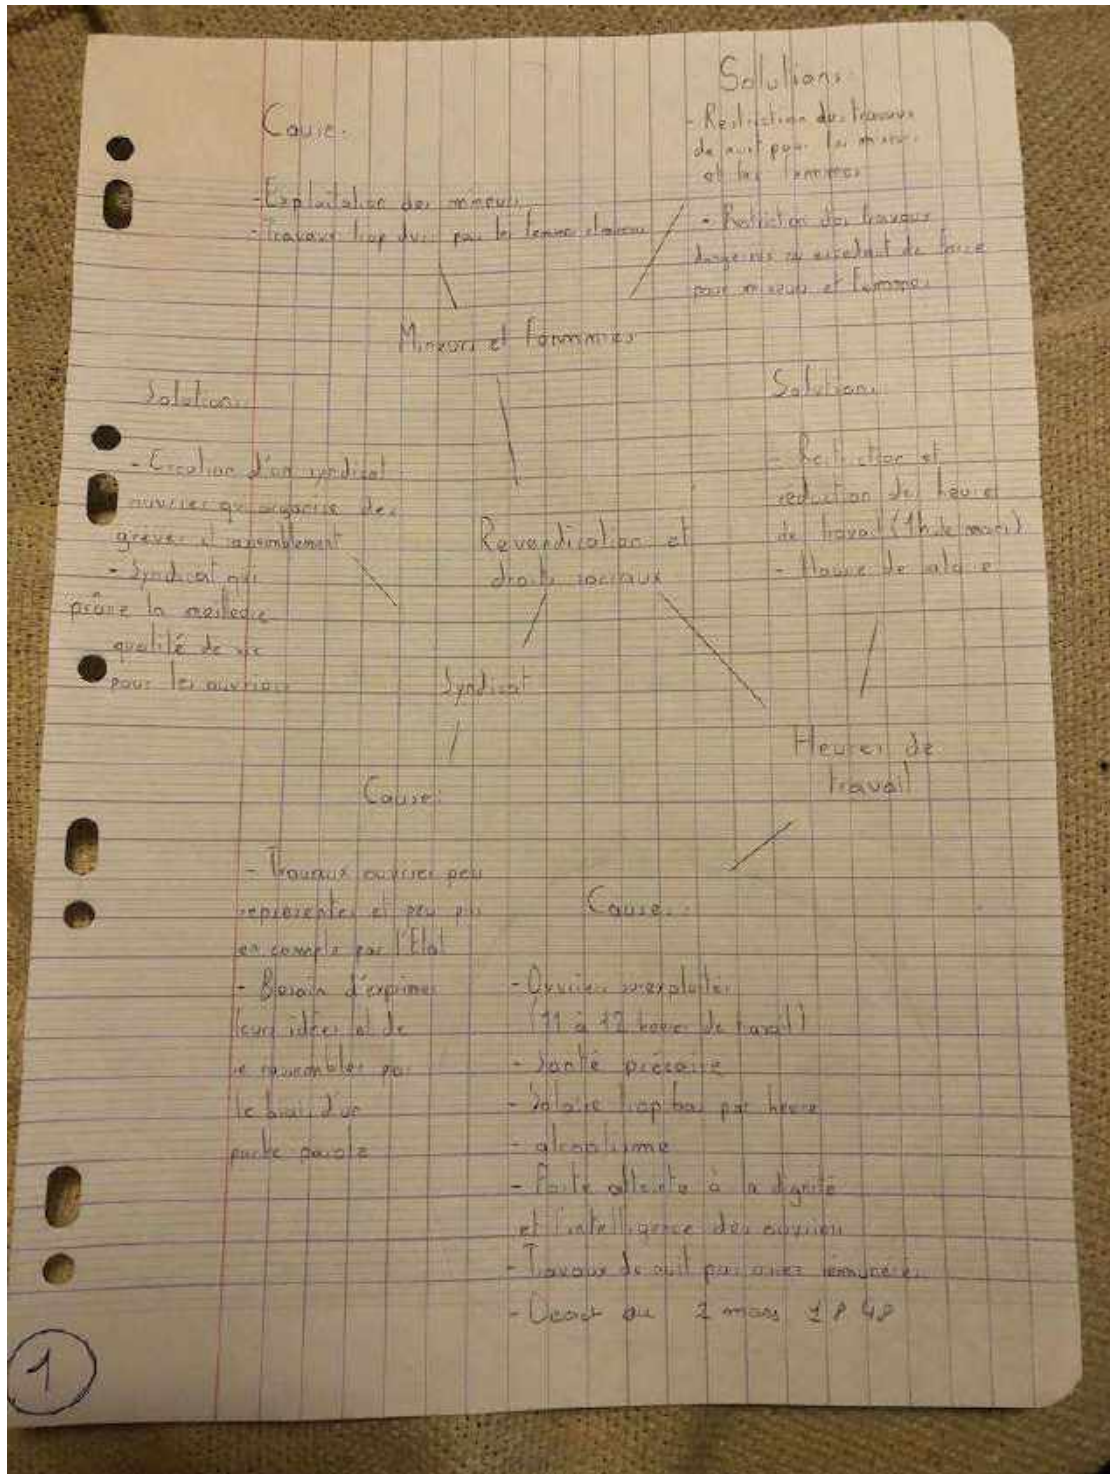 Solutions:
- Restriction des travaux
de nuit pour les mineurs
et les femmes
- Restriction des travaux
dangereux ou excedant de force
pour mineurs et femmes
Cause:
- Exploitation des mineurs
- Travaux trop durs pour les femmes
Mineurs et femmes
Solutions:
- Creation d'un syndicat
ouvrier qui organise des
grèves et rassemblement
- Syndicat qui
prône la meilleure
qualité de vie
pour les ouvriers
Revendication et
droits sociaux
Solutions:
- Restriction et
réduction des heures
de travail (1h de moins)
- Hausse de salaire
Syndicat
Heures de
travail
Cause:
- Travaux ouvrier peu
représentés et peu pris
en compte par l'Etat
- Besoin d'exprimer
leurs idées et de
se rassembler par
le biais d'un
porte parole
Causes:
- Ouvriers surexploités
(11 à 12 heures de travail)
- Santé précaire
- Salaire trop bas par heure
- alcoolisme
- Porte atteinte à la dignité
et l'intelligence des ouvriers
- Travaux de nuit pas assez rémunérés
- au 2 mars 1848
1